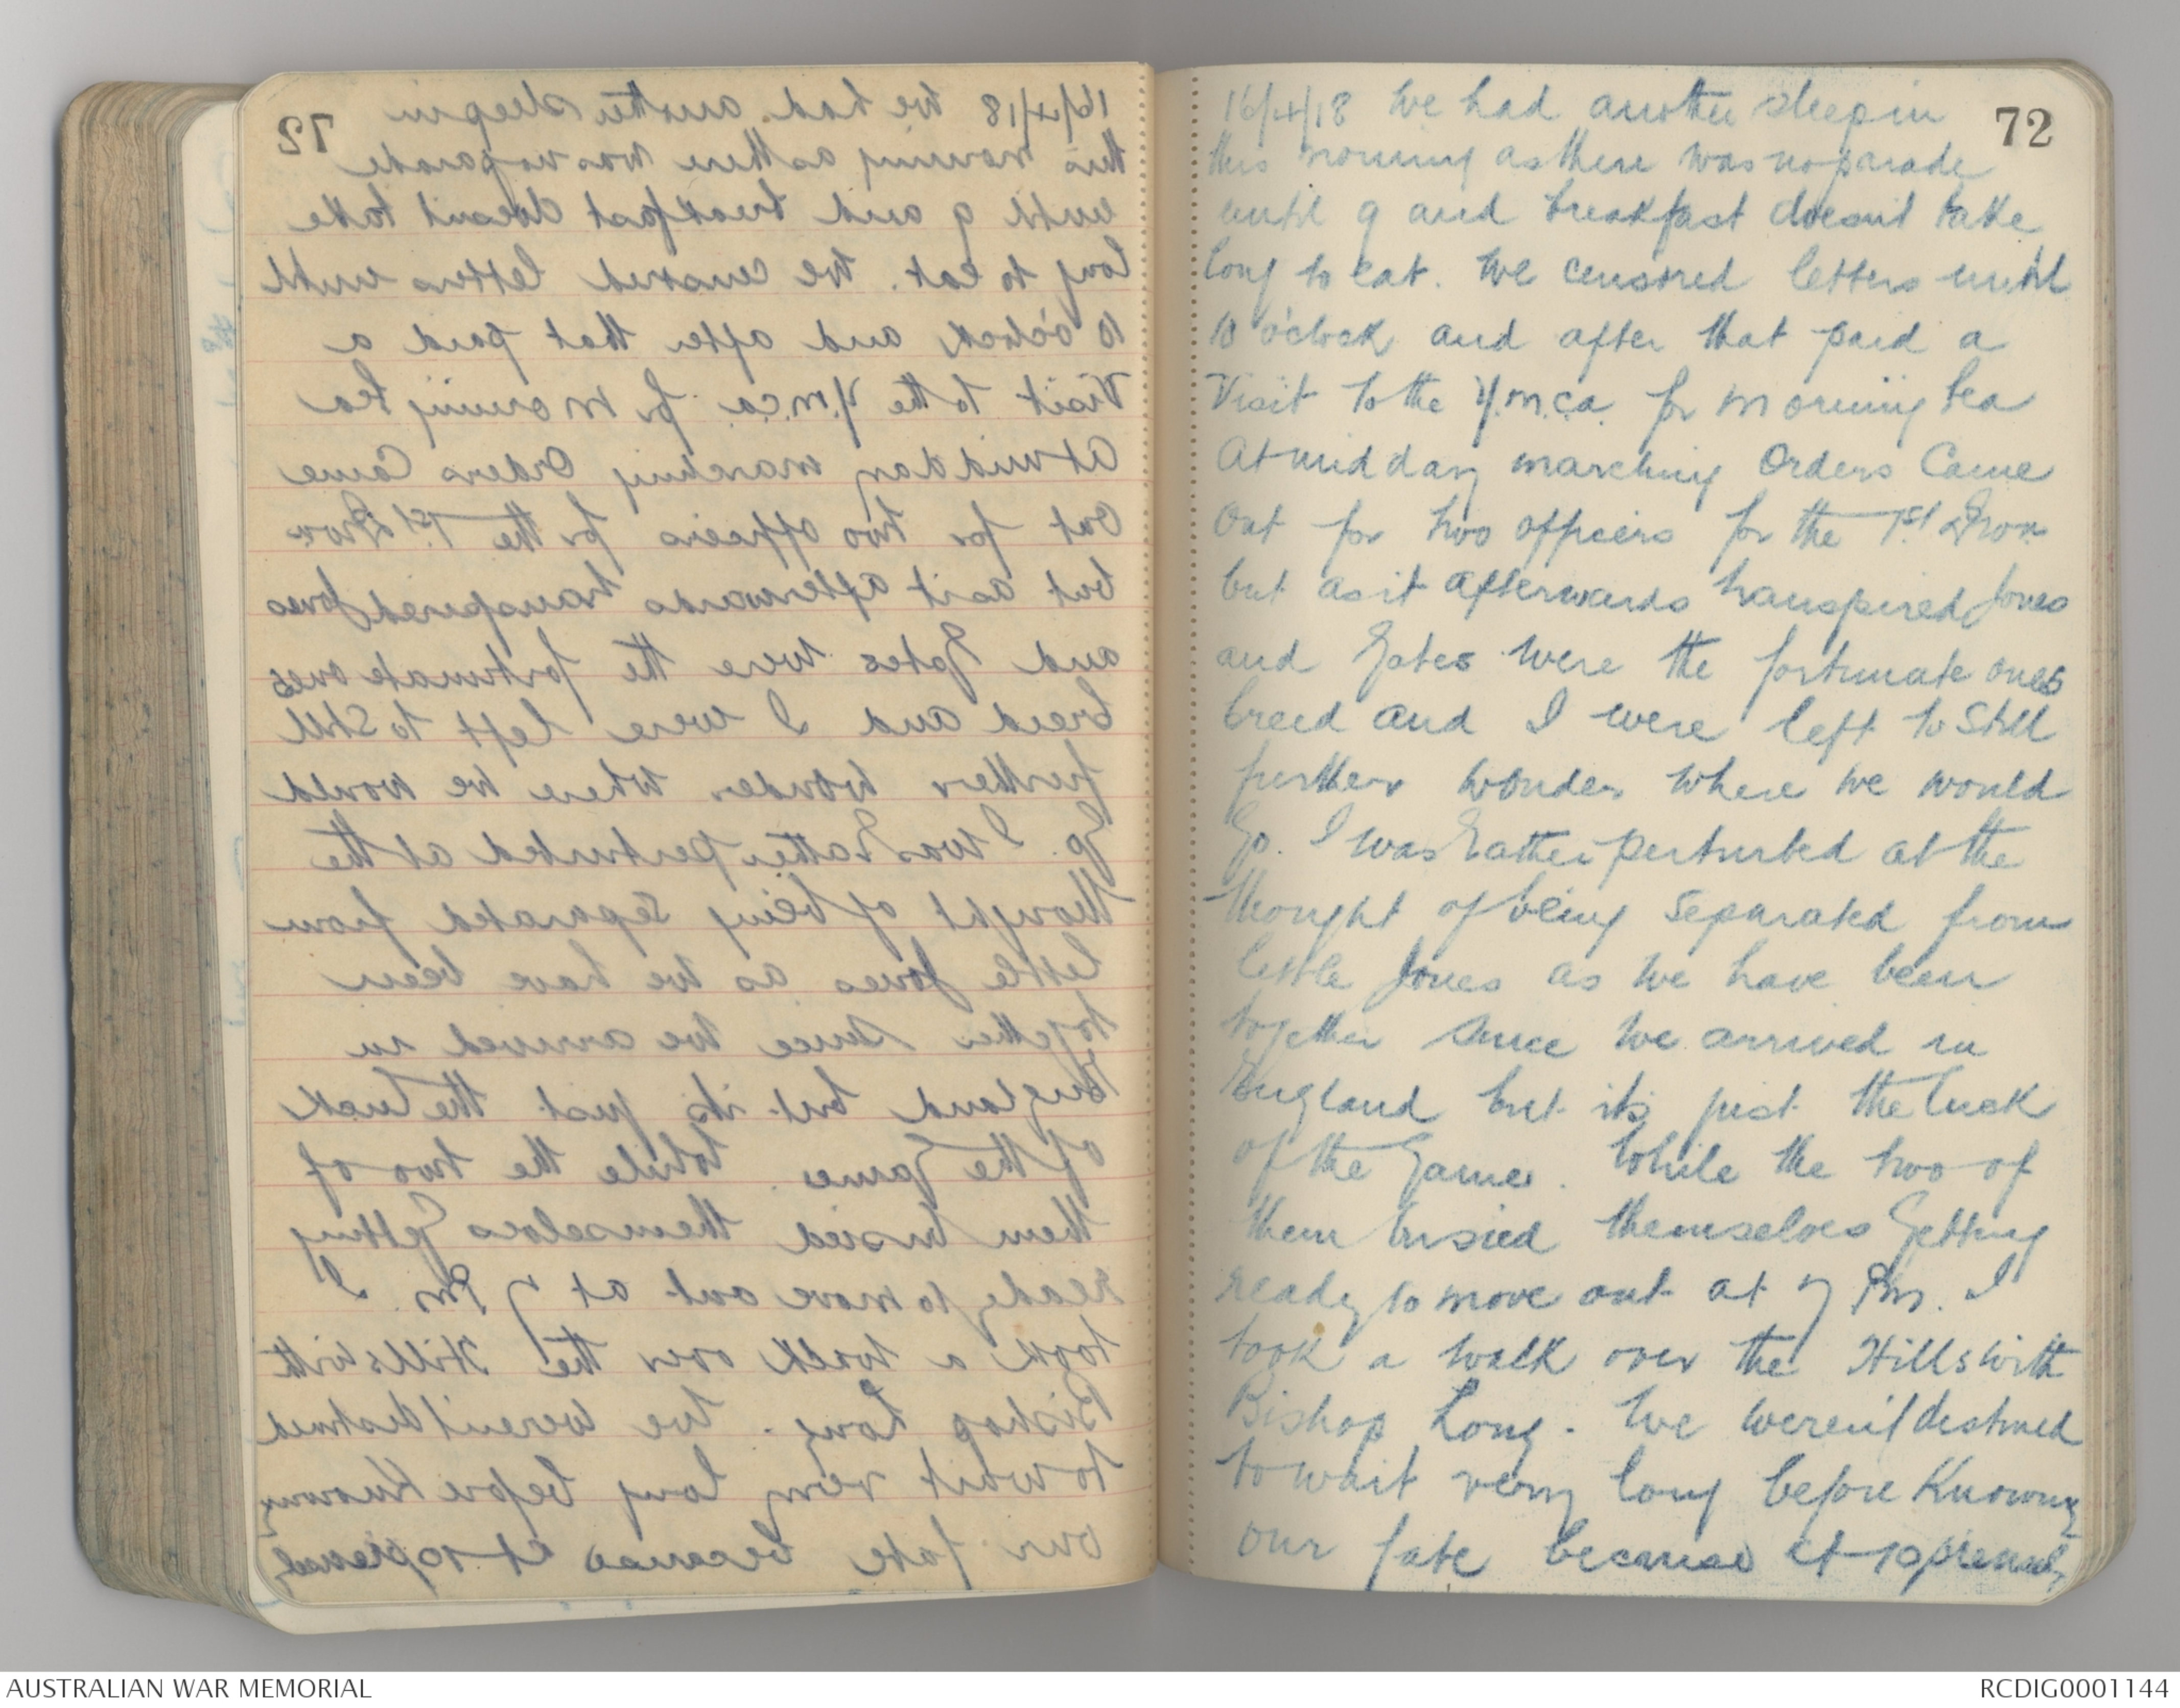 72
16/4/18 We had another sleep in
this morning as there was no parade
until 9 and breakfast doesnt take
long to eat. We censored letters until
10 o'clock and after that paid a
Visit to the Y.M.C.A. for morning tea
At midday marching Orders Came
Out for two officers for the 1st Divn
but as it afterwards transpired Jones
and Yates were the fortunate ones
breed and I were left to still
further wonder where we would
Go. I was Rather perturbed at the
thought of being separated from
little Jones as we have been
together since we arrived in
England but its just the luck
of the Game. While the two of
them busied themselves Getting
ready to move out at 7 Pm. I
took a walk over the Hills with
Bishop Long. We weren't destined
to wait very long before Knowing
our fate because at
AUSTRALIAN WAR MEMORIAL
RCDIG0001144